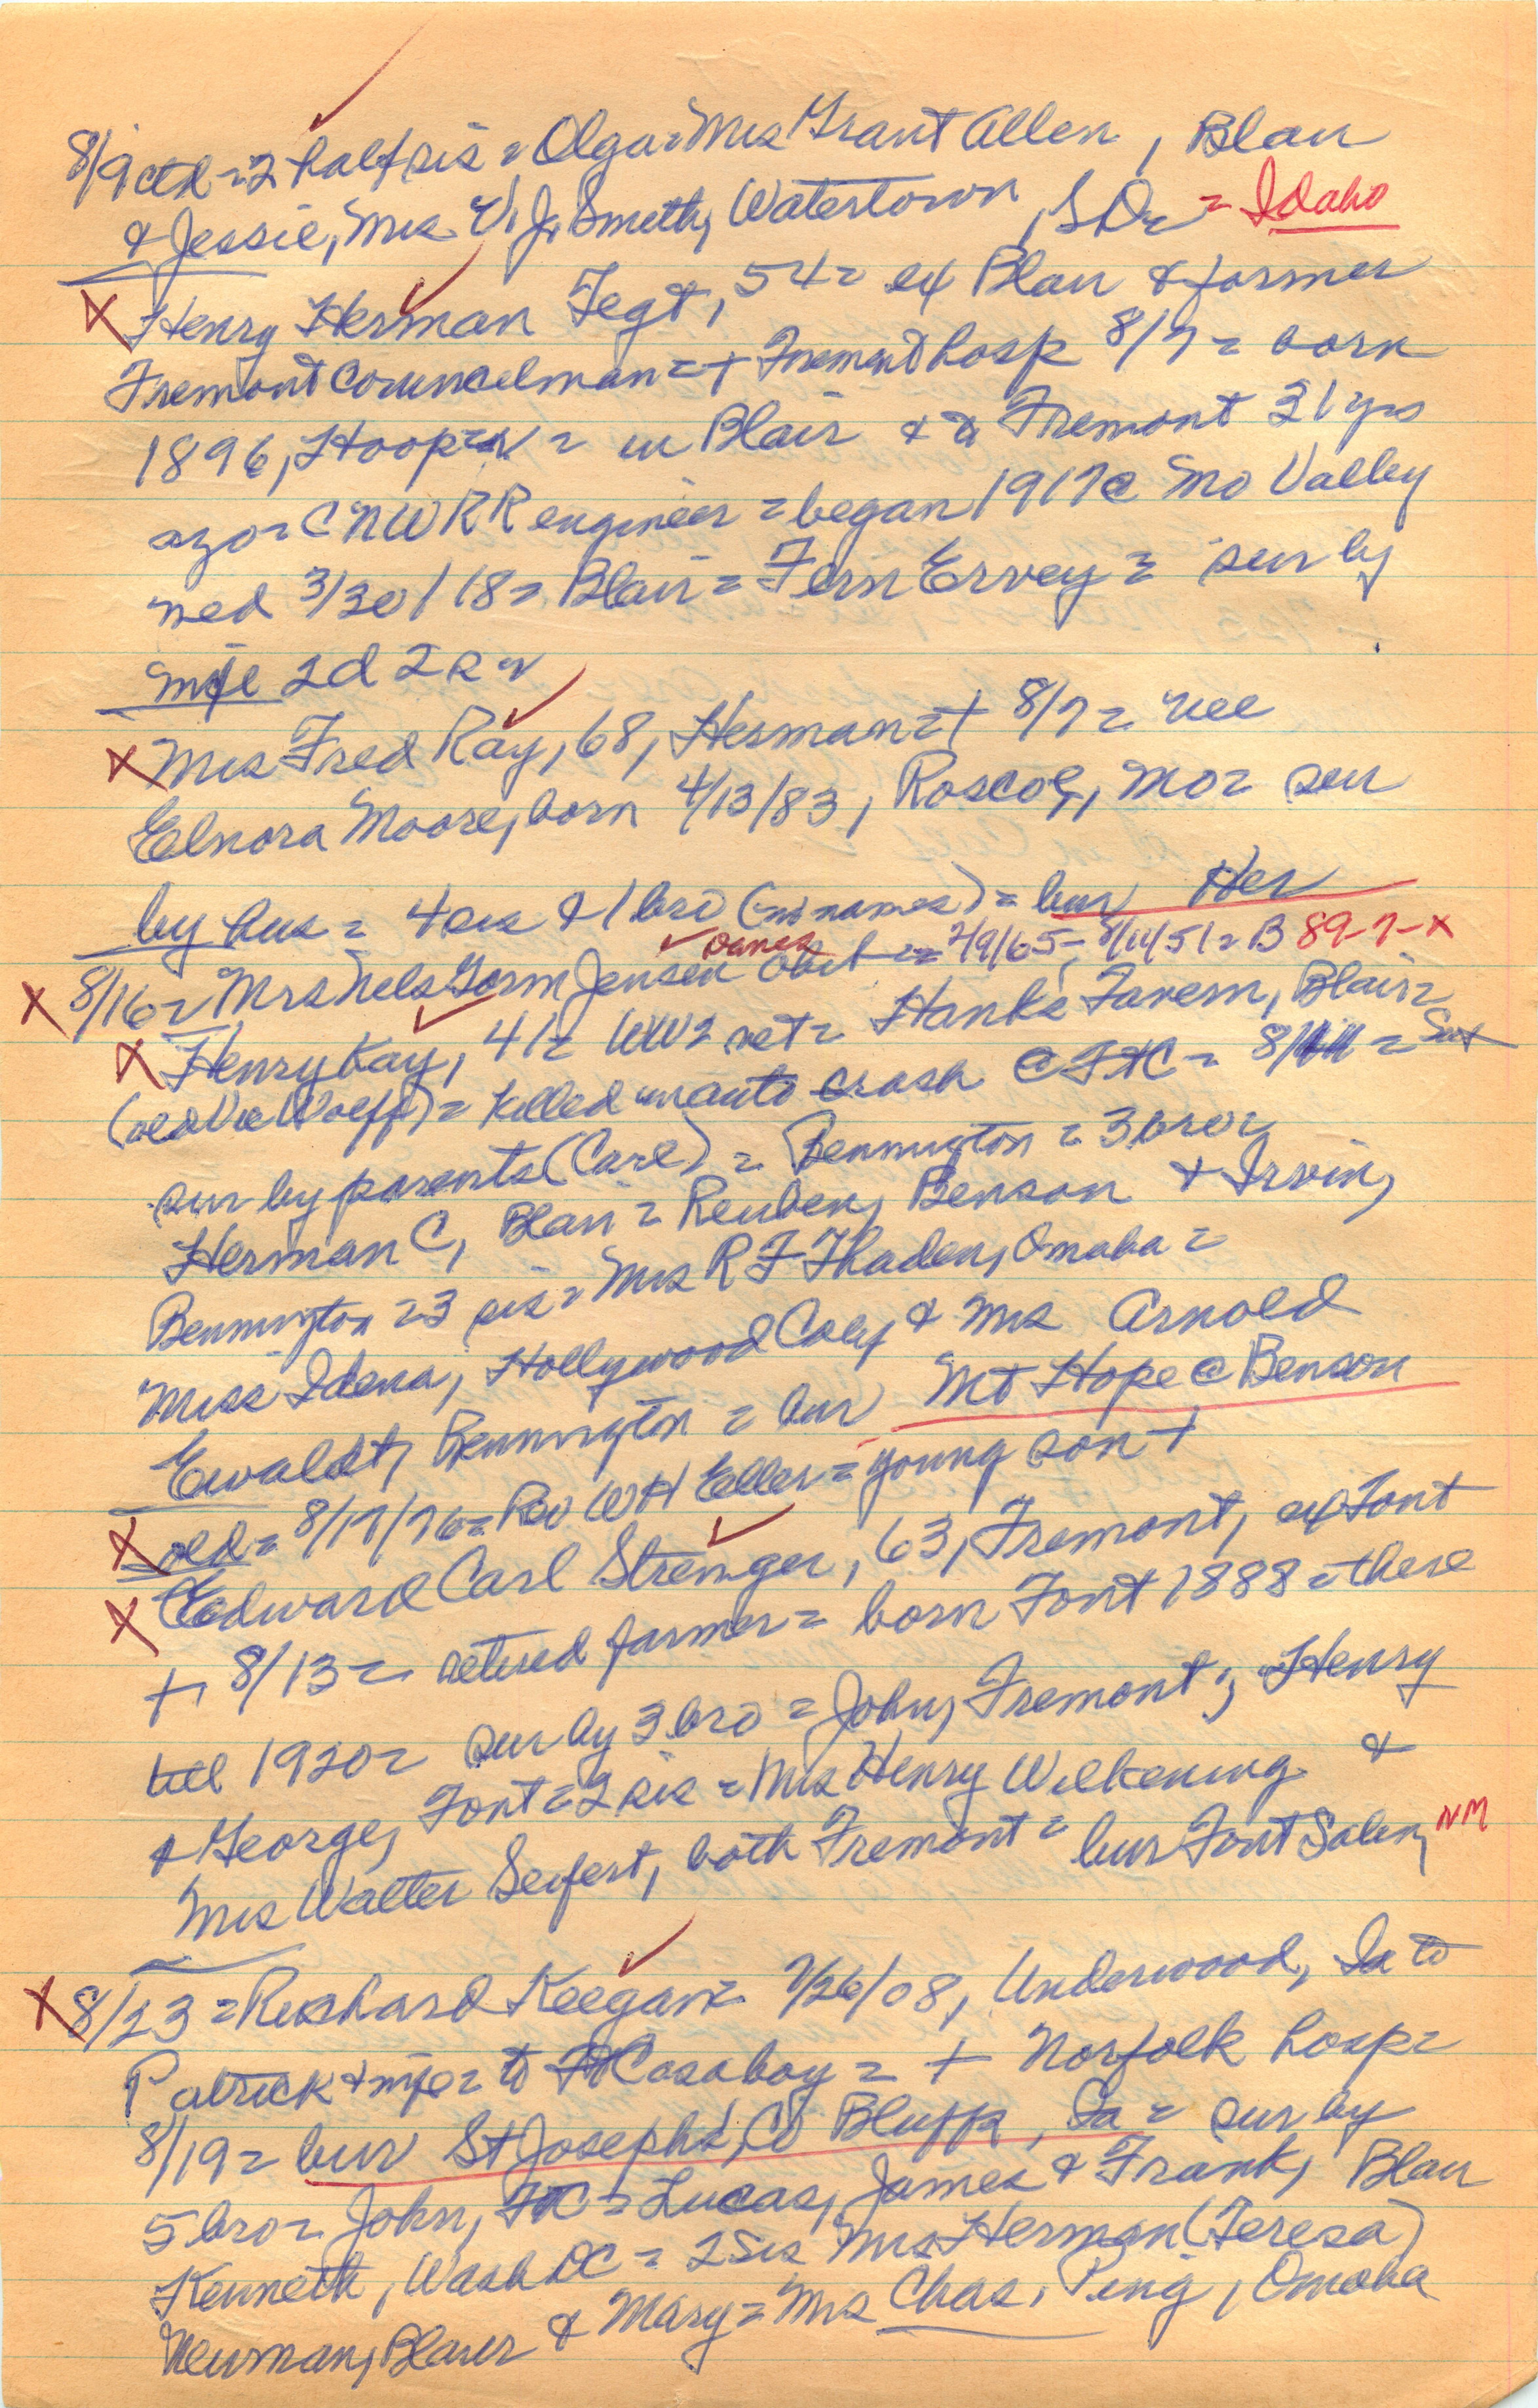 8/9 ctd = 2 half sis = Olga = Mrs Grant Allen, Blair
& Jessie, Mrs V. J. Smith, Watertown, SD = Idaho
X Henry Herman Tegt, 54 = ex Blair & former
Fremont Councilman = + Fremont hosp 8/7 = born
1896, Hooper = in Blair & Fremont 31 yrs
ago = CNWRR engineer = began 1917 @ Mo Valley
med 3/30/18 = Blair = Fern Ervey = sur by
mife 2d 2s
X Mrs Fred Ray, 68, Herman = + 8/7 = nee
Elnora Moore, born 4/13/83, Roscoe, Mo = sur
by hus = 4 sis & 1 bro (no names) = bur Her
Danes
X 8/16 = Mrs Nels Gorm Jensen obit = 2/9/65 - 8/11/51 = B 89-7-X
X Henry Kay, 41 = WW2 vet = Hank's Tavern, Blair =
(old Vic Wolff) = killed in auto crash @ FtC = 8/11 = Sat
sur by parents (Carl) = Bennington = 3 bro =
Herman C, Blair = Reuben, Benson & Irvin,
Bennington = 3 sis = Mrs R F Thaden, Omaha =
Miss Idena, Hollywood Calif & Mrs Arnold
Ewaldt, Bennington = bur Mt Hope @ Benson
X old = 8/17/76 = Rev W H Eller = young son +
X Edward Carl Strenger, 63, Fremont, ex Font
+ 8/13 = retired farmer = born Font 1888 = there
till 1920 = sur by 3 bro = John, Fremont; Henry
& George, Font = 2 sis = Mrs Henry Wilkening &
Mrs Walter Seifert, both Fremont = bur Font Salem, NM
X 8/23 = Richard Keegan = 7/26/08, Underwood, Ia to
Patrick & mife = to FtC as a boy = + Norfolk hosp =
8/19 = bur St Joseph's, Co Bluffs, Ia = sur by
5 bro = John, FtC = Lucas, James & Frank, Blair
Kenneth, Wash DC = 2 sis Mrs Herman (Teresa)
Neuman, Blair & Mary = Mrs Chas. Ping, Omaha